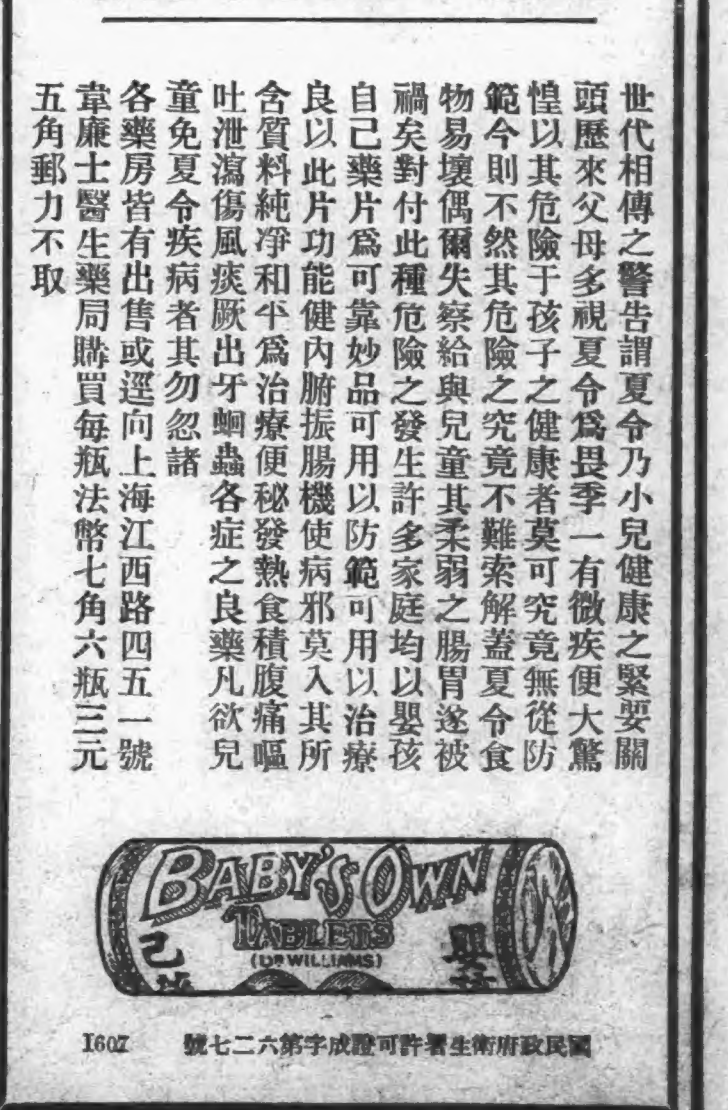 世代相傳之警告謂夏令乃小兒健康之緊要關
頭歷來父母多視夏令爲畏季一有微疾便大驚
惶以其危險于孩子之健康者莫可究竟無從防
範今則不然其危險之究竟不難索解蓋夏令食
物易壞偶爾失察給與兒童其柔弱之腸胃遂被
禍矣對付此種危險之發生許多家庭均以嬰孩
自己藥片爲可靠妙品可用以防範可用以治療
良以此片功能健內腑振腸機使病邪莫入其所
含質料純凈和平爲治療便秘發熱食積腹痛嘔
吐泄瀉傷風痰厥出牙蛔蟲各症之良藥凡欲兒
童免夏令疾病者其勿忽諸
各藥房皆有出售或逕向上海江西路四五一號
韋廉士醫生藥局購買每瓶法幣七角六瓶三元
五角郵力不取
BABY'S OWN
TABLETS
(DR WILLIAMS)
嬰
己
國民政府衛生署許可證成字第六二七號
1607